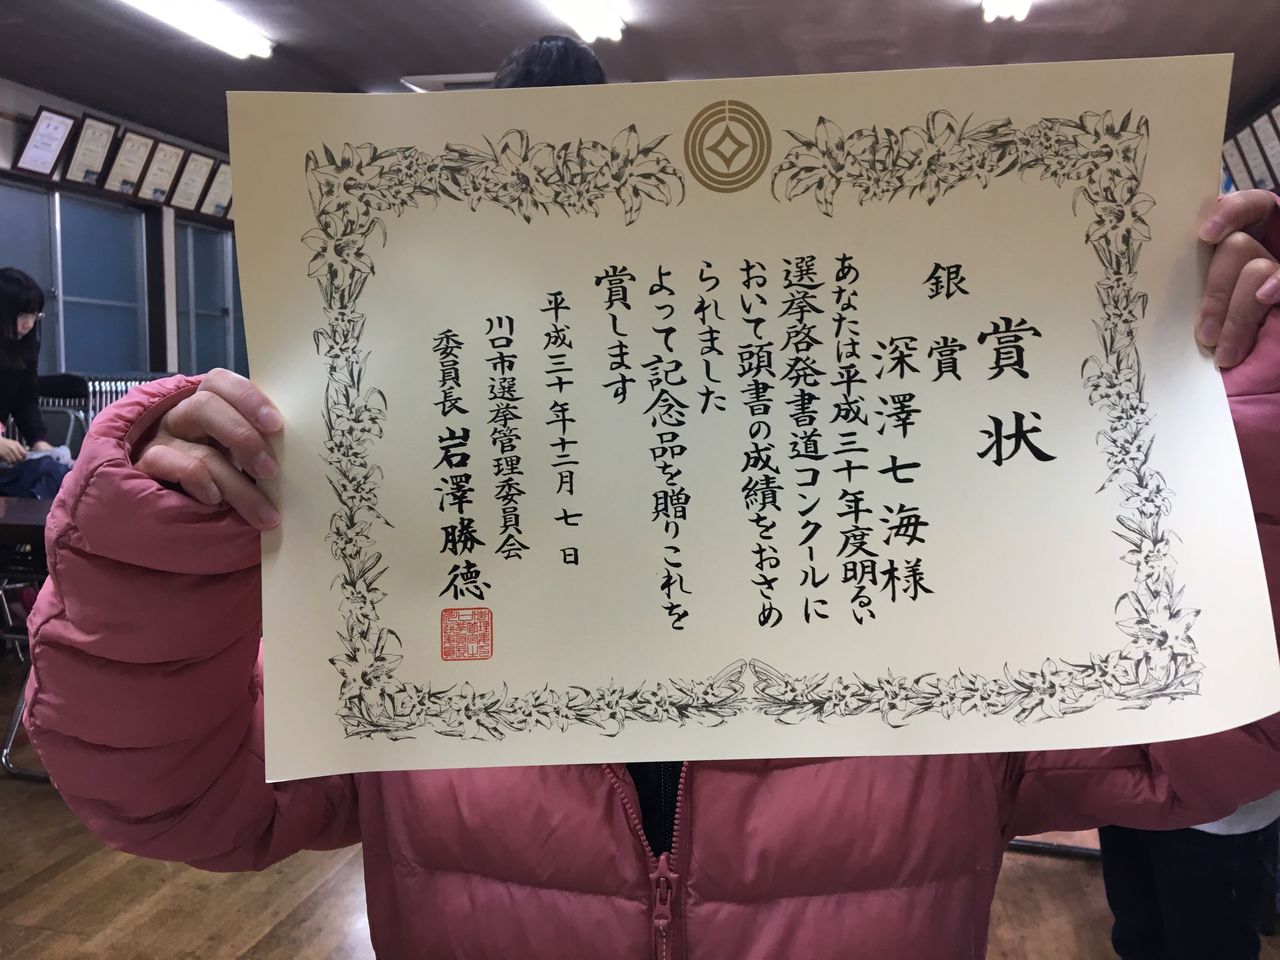 賞状
銀賞
深澤七海様
あなたは平成三十年度明るい
選挙啓発書道コンクールに
おいて頭書の成績をおさめ
られました
よって記念品を贈りこれを
賞します
平成三十年十二月七日
川口市選挙管理委員会
委員長 岩澤勝徳